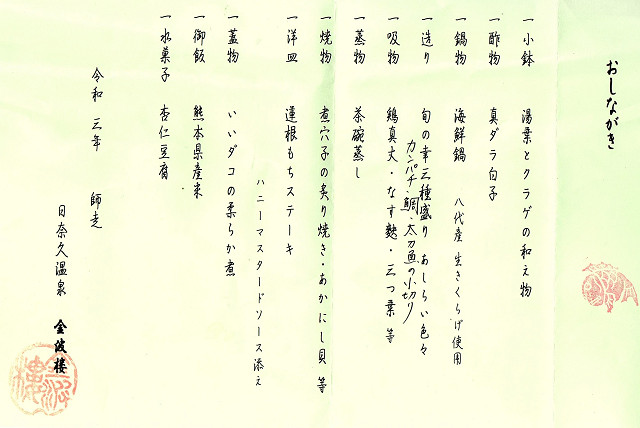 おしながき
一 小鉢 湯葉とクラゲの和え物
一 酢物 真ダラ白子
一 鍋物 海鮮鍋 八代産 生きくらげ使用
一 造り 旬の幸三種盛り あしらい色々
カンパチ・鯛・太刀魚の小切り
一 吸物 鶏真丈・なす麩・三つ葉 等
一 蒸物 茶碗蒸し
一 焼物 煮穴子の炙り焼き・あかにし貝 等
一 洋皿 蓮根もちステーキ
ハニーマスタードソース添え
一 蓋物 いいダコの柔らか煮
一 御飯 熊本県産米
一 水菓子 杏仁豆腐
令和 三年 師走
日奈久温泉 金波楼